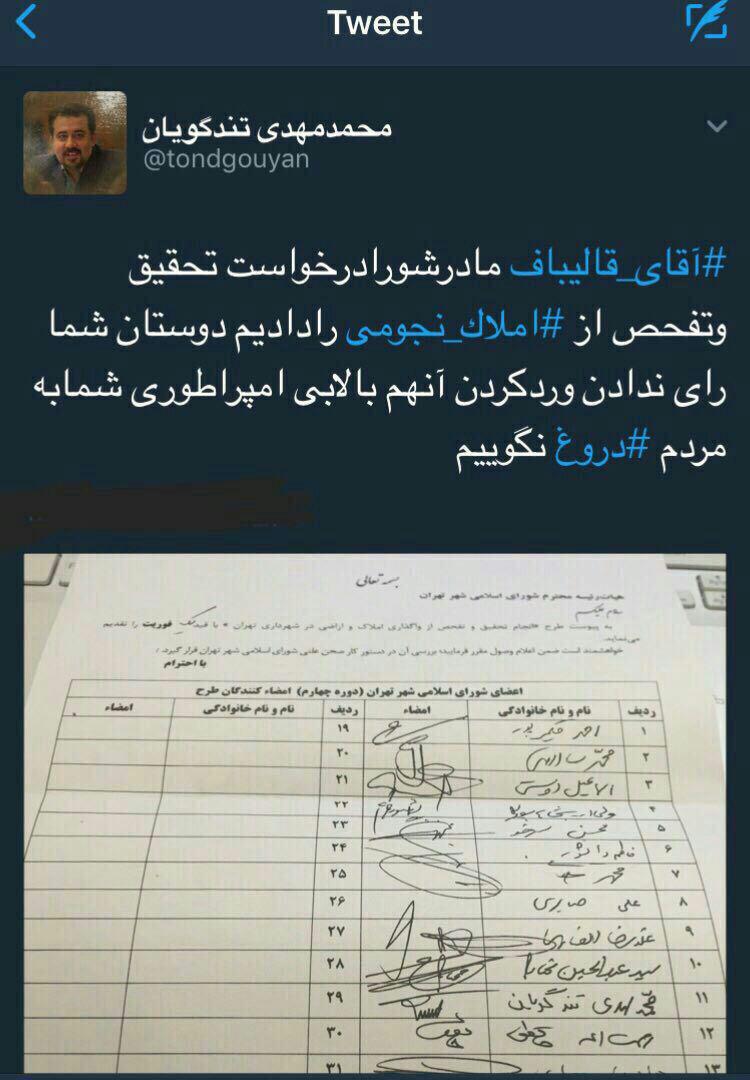 Tweet
محمدمهدی تندگویان
@tondgouyan
#آقای_قالیباف مادرشورادرخواست تحقیق
وتفحص از #املاك_نجومی رادادیم دوستان شما
رای ندادن وردکردن آنهم بالابی امپراطوری شمابه
مردم #دروغ نگوییم
بسمه تعالی
هیات رئیسه محترم شورای اسلامی شهر تهران
سلام علیکم
به پیوست طرح «انجام تحقیق و تفحص از واگذاری املاک و اراضی در شهرداری تهران » با قید یک فوریت را تقدیم
می‌نماید.
خواهشمند است ضمن اعلام وصول مقرر فرمایید؛ بررسی آن در دستور کار صحن علنی شورای اسلامی شهر تهران قرار گیرد. /
با احترام
اعضای شورای اسلامی شهر تهران (دوره چهارم) امضاء کنندگان طرح
ردیف نام و نام خانوادگی امضاء ردیف نام و نام خانوادگی امضاء
۱ احمد حکیمی پور ۱۹
۲ محمد سالاری ۲۰
۳ اسماعیل دوستی ۲۱
۴ ۲۲
۵ محسن سرخو ۲۳
۶ فاطمه دانشور ۲۴
۷ ۲۵
۸ علی صابری ۲۶
۹ ۲۷
۱۰ سید عبدالحسین ۲۸
۱۱ محمد مهدی تندگویان ۲۹
۱۲ ۳۰
۱۳ ۳۱